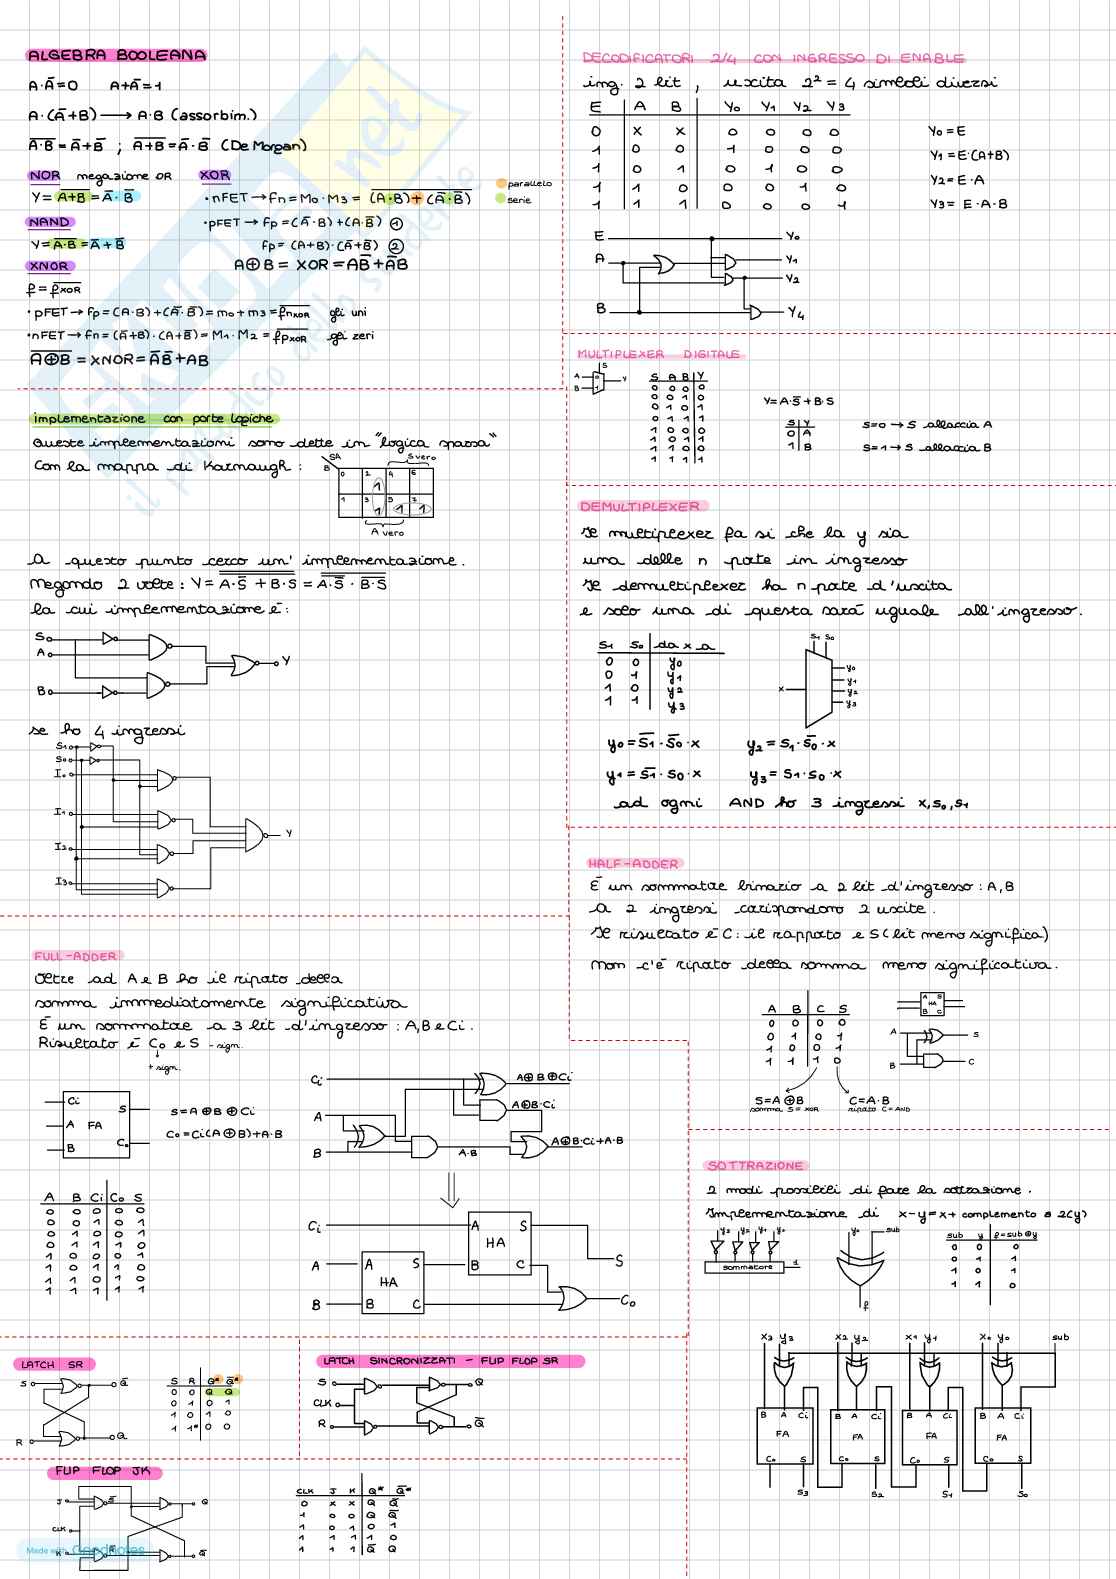 ALGEBRA BOOLEANA
A·Ā=0 A+Ā=1
A·(Ā+B) → A·B (assorbim.)
\overline{A·B} = Ā+B̄ ; \overline{A+B} = Ā·B̄ (De Morgan)
NOR negazione OR
Y= \overline{A+B} = Ā·B̄
NAND
Y= \overline{A·B} = Ā+B̄
XNOR
f = \overline{fXOR}
XOR
·nFET → fn = M0·M3 = \overline{(A·B)+(Ā·B̄)}
parallelo
serie
·pFET → fp = (Ā·B)+(A·B̄) 1
fp = (A+B)·(Ā+B̄) 2
A⊕B = XOR = AB̄+ĀB
·pFET → fp = (A·B)+(Ā·B̄) = m0+m3 = \overline{fnXOR} gli uni
·nFET → fn = (Ā+B)·(A+B̄) = M1·M2 = \overline{fpXOR} gli zeri
\overline{A⊕B} = XNOR = ĀB̄+AB
implementazione con porte logiche
Queste implementazioni sono dette in "logica sparsa"
Con la mappa di Karnaugh:
SA
B
S vero
0 2 4 6
1
1 3 5 7
1 1 1
A vero
A questo punto cerco un' implementazione.
Negando 2 volte: Y = \overline{\overline{A·S̄ + B·S}} = \overline{\overline{A·S̄} · \overline{B·S}}
la cui implementazione è:
S
A
B
Y
se ho 4 ingressi
S1
S0
I0
I1
I2
I3
Y
DECODIFICATORI 2/4 CON INGRESSO DI ENABLE
ing. 2 bit , uscita 2² = 4 simboli diversi
E A B Y0 Y1 Y2 Y3
0 x x 0 0 0 0
1 0 0 1 0 0 0
1 0 1 0 1 0 0
1 1 0 0 0 1 0
1 1 1 0 0 0 1
Y0 = E
Y1 = E·(A+B)
Y2 = E·A
Y3 = E·A·B
E
A
B
Y0
Y1
Y2
Y4
MULTIPLEXER DIGITALE
S
A 0
B 1
Y
S A B Y
0 0 0 0
0 0 1 0
0 1 0 1
0 1 1 1
1 0 0 0
1 0 1 1
1 1 0 0
1 1 1 1
Y=A·S̄+B·S
S Y
0 A
1 B
S=0 → S allaccia A
S=1 → S allaccia B
DEMULTIPLEXER
Il multiplexer fa si che la y sia
una delle n porte in ingresso
Il demultiplexer ha n porte d'uscita
e solo una di questa sarà uguale all'ingresso.
S1 S0 da x a
0 0 y0
0 1 y1
1 0 y2
1 1 y3
S1 S0
x
y0
y1
y2
y3
y0 = S̄1·S̄0·x y2 = S1·S̄0·x
y1 = S̄1·S0·x y3 = S1·S0·x
ad ogni AND ho 3 ingressi x,s0,s1
HALF-ADDER
È un sommatore binario a 2 bit d'ingresso: A,B
A 2 ingressi corrispondono 2 uscite.
Il risultato è C: il rapporto e S (bit meno significa)
Non c'è riporto della somma meno significativa.
A B C S
0 0 0 0
0 1 0 1
1 0 0 1
1 1 1 0
A S
HA
B C
A
B
S
C
S=A⊕B
somma S = XOR
C=A·B
riporto C=AND
FULL-ADDER
Oltre ad A e B ho il riporto della
somma immediatamente significativa
È un sommatore a 3 bit d'ingresso: A,B e Ci.
Risultato è C0 e S - sign.
+ sign.
Ci
A FA
B
S
C0
S=A⊕B⊕Ci
C0=Ci(A⊕B)+A·B
Ci
A
B
A⊕B⊕Ci
A⊕B·Ci
A·B
A⊕B·Ci+A·B
A B Ci C0 S
0 0 0 0 0
0 0 1 0 1
0 1 0 0 1
0 1 1 1 0
1 0 0 0 1
1 0 1 1 0
1 1 0 1 0
1 1 1 1 1
Ci
A
B
A S
HA
B C
A S
HA
B C
S
C0
SOTTRAZIONE
2 modi possibili di fare la sottrazione.
Implementazione di x-y=x+ complemento a 2(y)
y3 y2 y1 y0
sommatore
1
y0 sub
f
sub y f=sub⊕y
0 0 0
0 1 1
1 0 1
1 1 0
x3 y3 x2 y2 x1 y1 x0 y0 sub
B A Ci B A Ci B A Ci B A Ci
FA FA FA FA
C0 S C0 S C0 S C0 S
S3 S2 S1 S0
LATCH SR
S
R
Q̄
Q
S R Q* Q̄*
0 0 Q Q̄
0 1 0 1
1 0 1 0
1 1* 0 0
LATCH SINCRONIZZATI - FLIP FLOP SR
S
CLK
R
Q
Q̄
FLIP FLOP JK
J
CLK
K
S̄
R̄
Q
Q̄
CLK J K Q* Q̄*
0 x x Q Q̄
1 0 0 Q Q̄
1 0 1 0 1
1 1 0 1 0
1 1 1 Q̄ Q
Made with Goodnotes